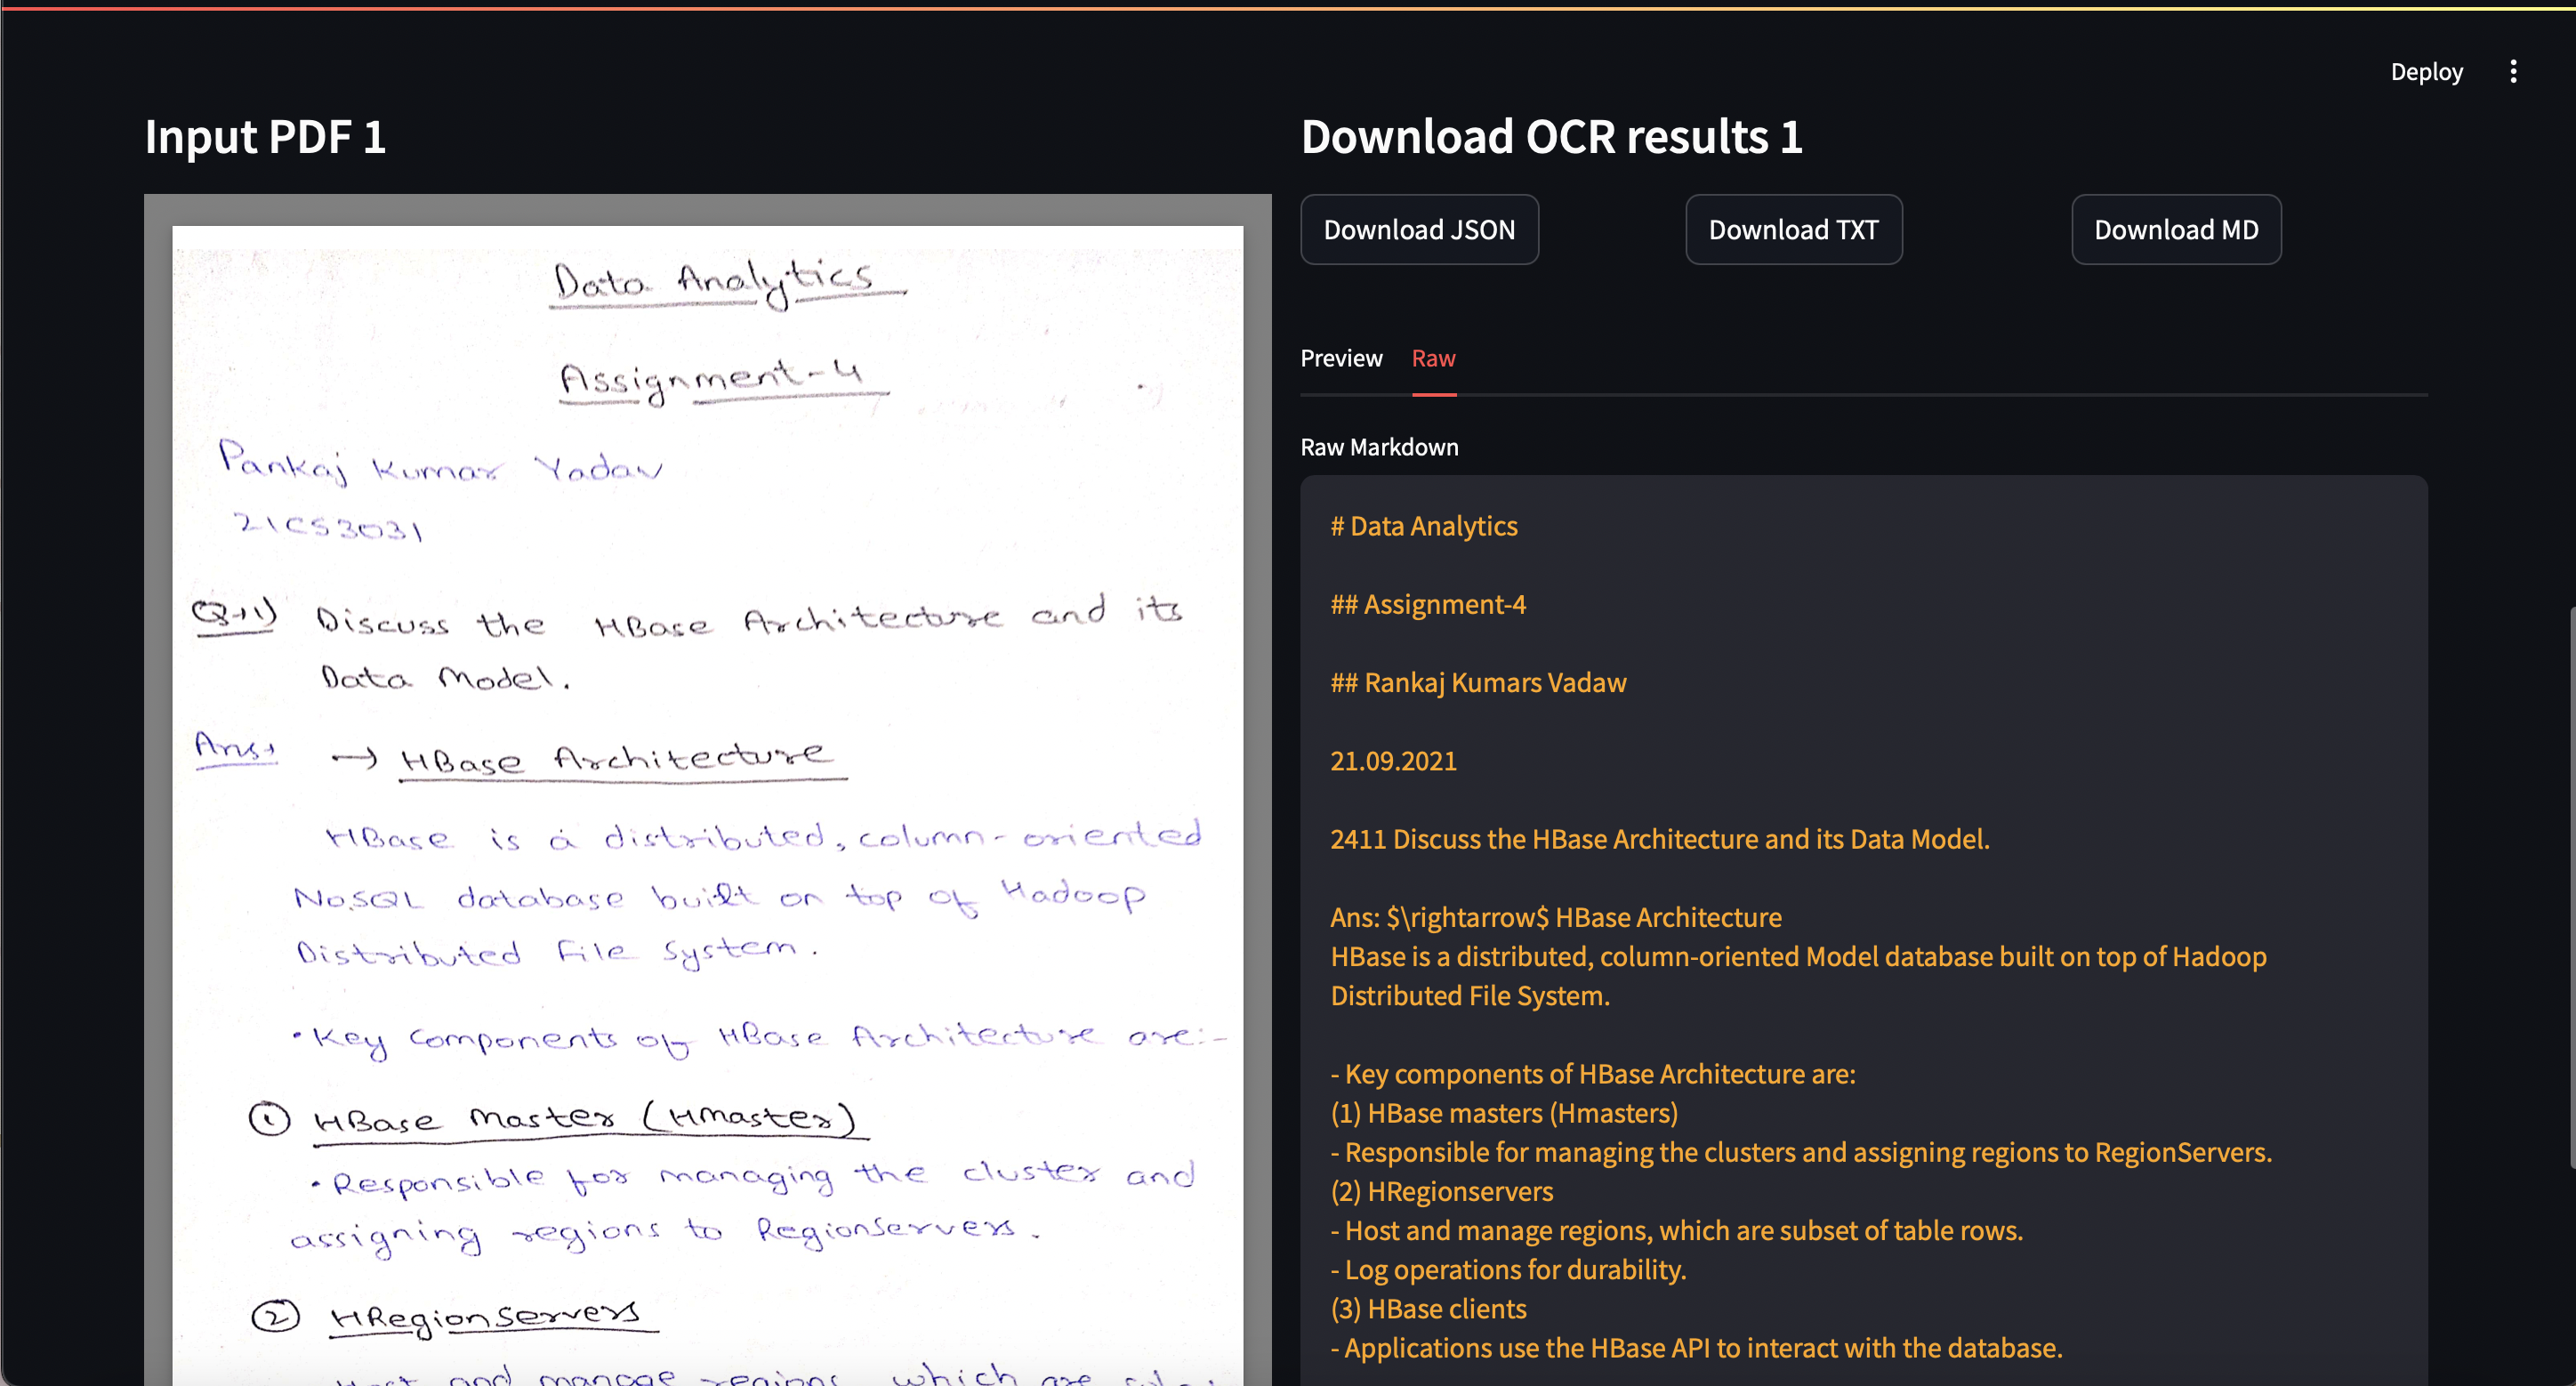 Deploy
Input PDF 1
Data Analytics
Assignment-4
Pankaj Kumar Yadav
21CS3031
Q→1) Discuss the HBase Architecture and its
Data Model.
Ans→ → HBase Architecture
HBase is a distributed, column-oriented
NoSQL database built on top of Hadoop
Distributed File System.
• Key Components of HBase Architecture are:-
① HBase Master (HMaster)
• Responsible for managing the cluster and
assigning regions to RegionServers.
② HRegionServers
Host and manage regions, which are
Download OCR results 1
Download JSON Download TXT Download MD
Preview Raw
Raw Markdown
# Data Analytics
## Assignment-4
## Rankaj Kumars Vadaw
21.09.2021
2411 Discuss the HBase Architecture and its Data Model.
Ans: $\rightarrow$ HBase Architecture
HBase is a distributed, column-oriented Model database built on top of Hadoop
Distributed File System.
- Key components of HBase Architecture are:
(1) HBase masters (Hmasters)
- Responsible for managing the clusters and assigning regions to RegionServers.
(2) HRegionservers
- Host and manage regions, which are subset of table rows.
- Log operations for durability.
(3) HBase clients
- Applications use the HBase API to interact with the database.